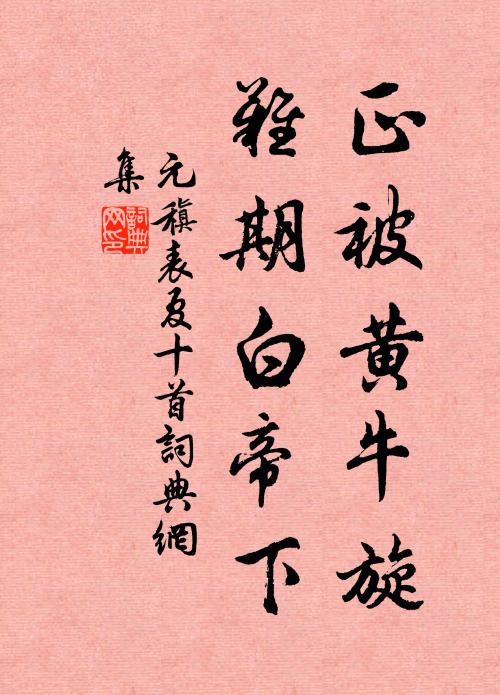 正被黄牛旋
難期白帝下
元稹表夏十首詞典網
集
詞典
网印